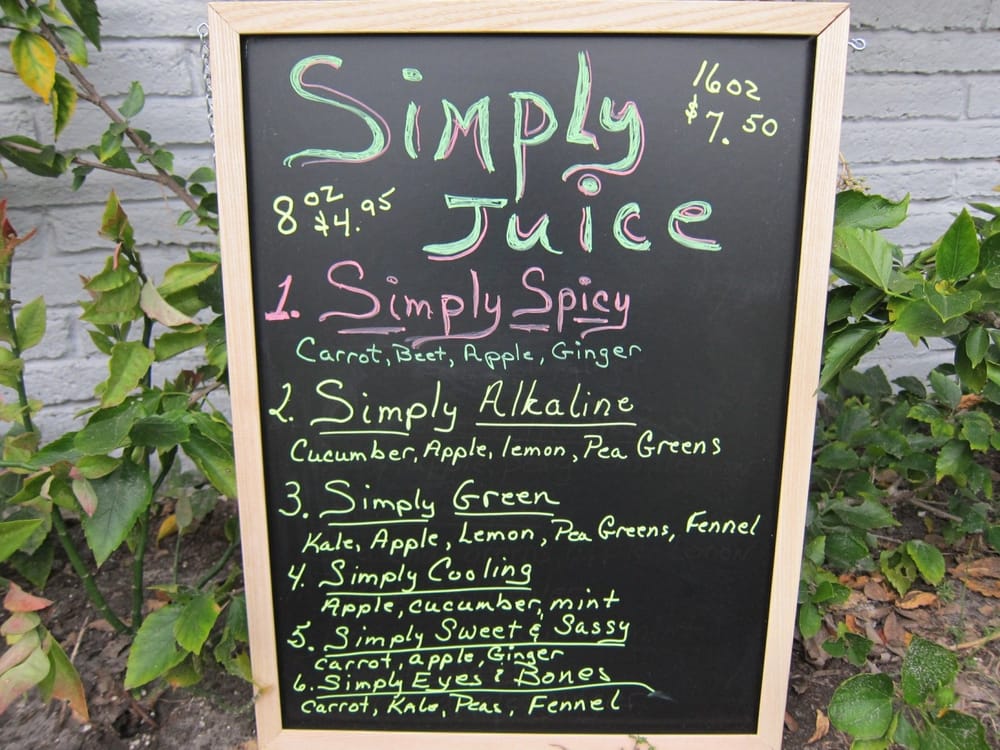 Simply
16oz
$7.50
8oz
$4.95
Juice
1. Simply Spicy
Carrot, Beet, Apple, Ginger
2. Simply Alkaline
Cucumber, Apple, lemon, Pea Greens
3. Simply Green
Kale, Apple, Lemon, Pea Greens, Fennel
4. Simply Cooling
Apple, cucumber, mint
5. Simply Sweet & Sassy
carrot, apple, Ginger
6. Simply Eyes & Bones
Carrot, Kale, Peas, Fennel